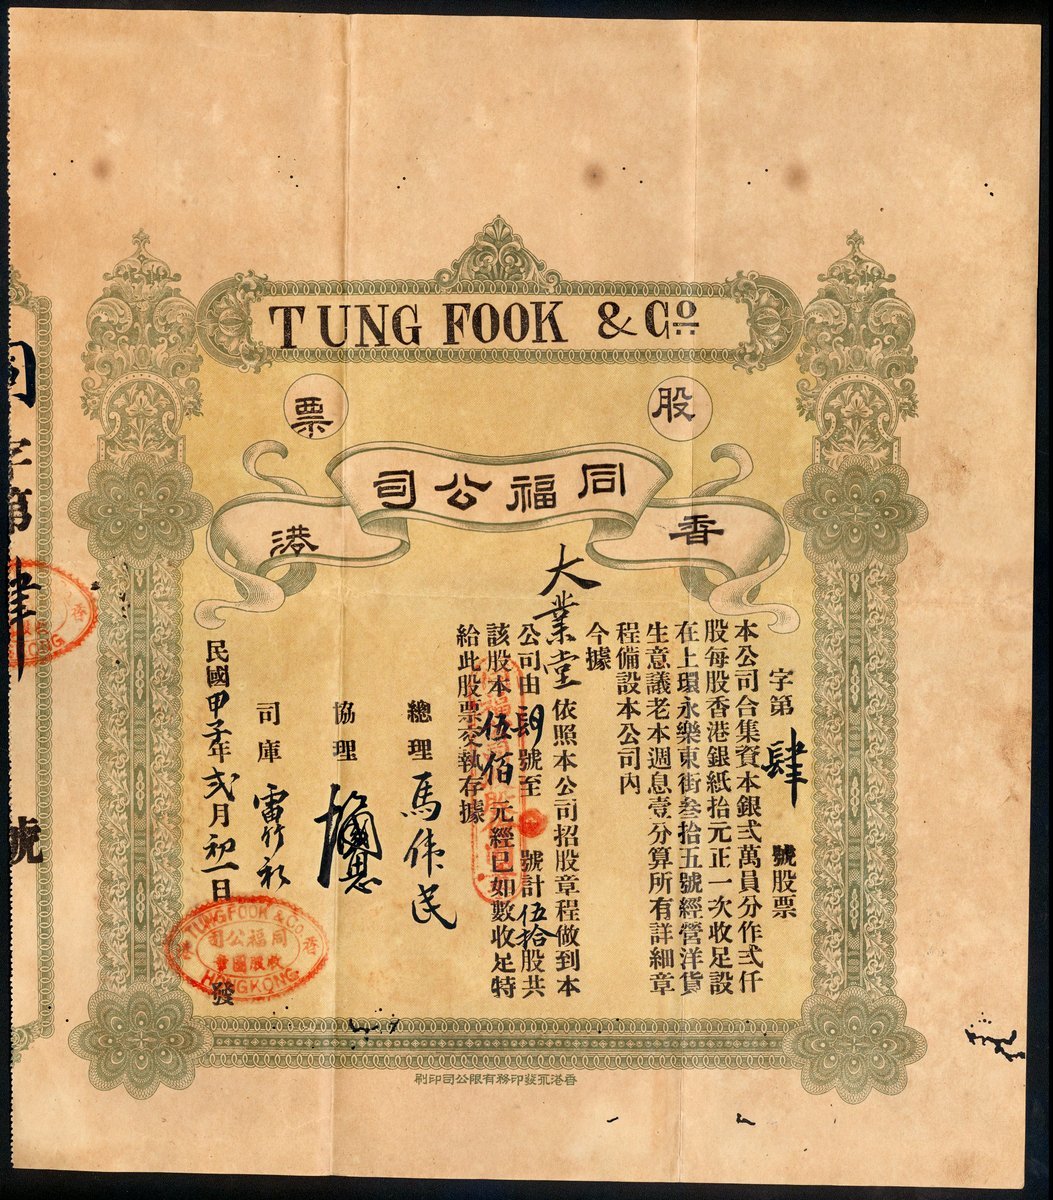 TUNG FOOK & Co
股票
同福公司
香港
字第肆號股票
本公司合集資本銀弍萬員分作弍仟
股每股香港銀紙拾元正一次收足設
在上環永樂東街叁拾五號經營洋貨
生意議老本週息壹分算所有詳細章
程備設本公司內
今據
大業堂依照本公司招股章程做到本
公司由肆號至 號計伍拾股共
該股本伍佰元經已如數收足特
給此股票交執存據
總理 馬偉民
協理
司庫 雷
民國甲子年弍月初一日發
TUNG FOOK & Co.
香港
同福公司
收股圖章
HANGKONG
同字第肆號
香港 發印務有限公司印刷